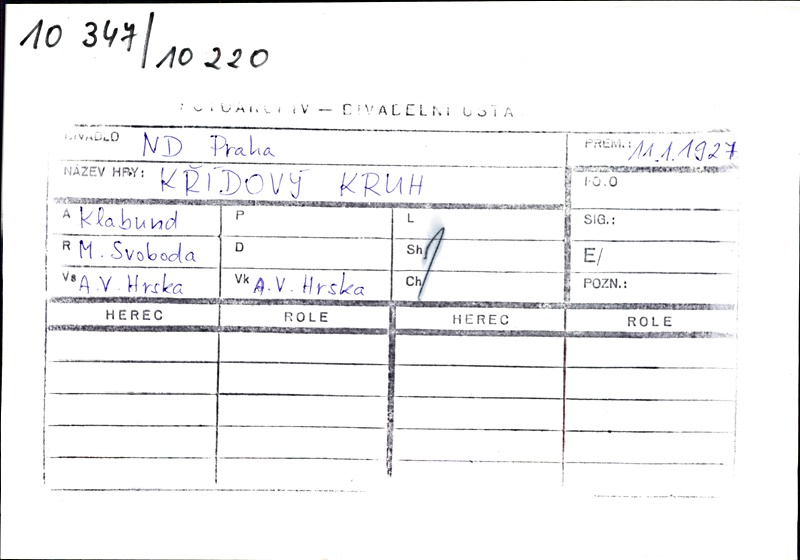 10 347/10 220
FOTOARCHIV — DIVADELNÍ ÚSTA
DIVADLO ND Praha PREM.: 11.1.1927
NÁZEV HRY: KŘÍDOVÝ KRUH FO.O
A Klabund P L SIG.:
R M. Svoboda D Sh E/
Vs A.V. Hrska Vk A.V. Hrska Ch POZN.:
HEREC ROLE HEREC ROLE